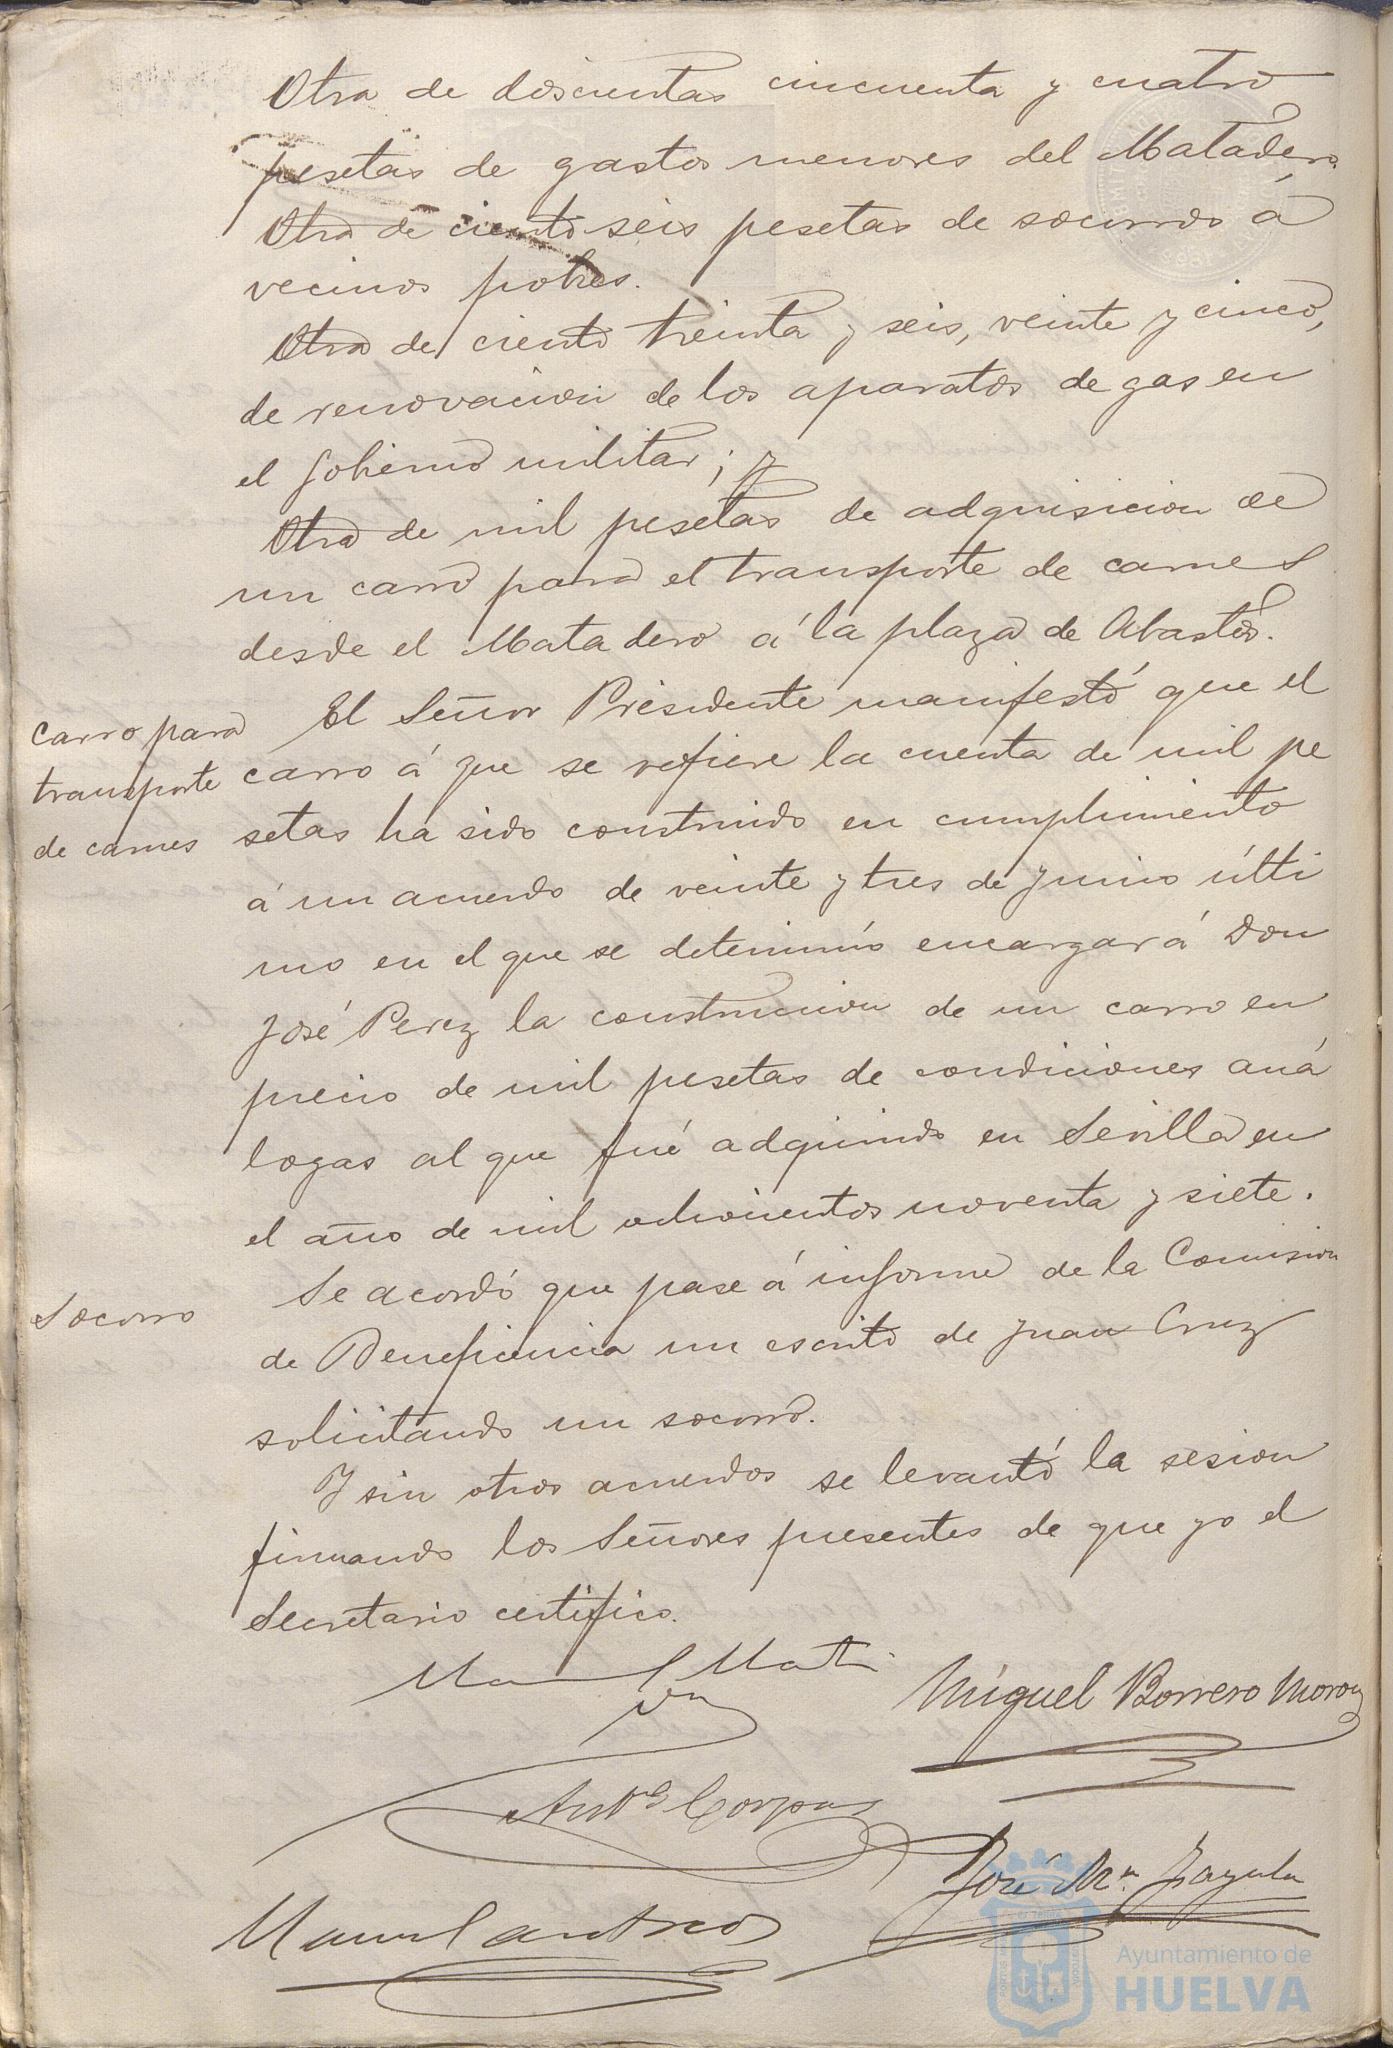 Otra de doscientas cincuenta y cuatro
pesetas de gastos menores del Matadero.
Otra de ciento seis pesetas de socorros á
vecinos pobres.
Otra de ciento treinta y seis, veinte y cinco,
de renovacion de los aparatos de gas en
el Gobierno militar; y
Otra de mil pesetas de adquisicion de
un carro para el transporte de carnes
desde el Matadero á la plaza de Abastos.
El Señor Presidente manifestó que el
carro para
carro á que se refiere la cuenta de mil pe
transporte
setas ha sido construido en cumplimiento
de carnes
á un acuerdo de veinte y tres de Junio últi
mo en el que se determinó encargar á Don
José Perez la construccion de un carro en
precio de mil pesetas de condiciones aná
logas al que fué adquirido en Sevilla en
el año de mil ochocientos noventa y siete.
Se acordó que pase á informe de la Comision
Socorro
de Beneficencia un escrito de Juan Cruz
solicitando un socorro.
Y sin otros acuerdos se levantó la sesion
firmando los Señores presentes de que yo el
Secretario certifico.
Miguel Borrero Moron
Antº Corpas
José Mª
Manuel
Ayuntamiento de
HUELVA